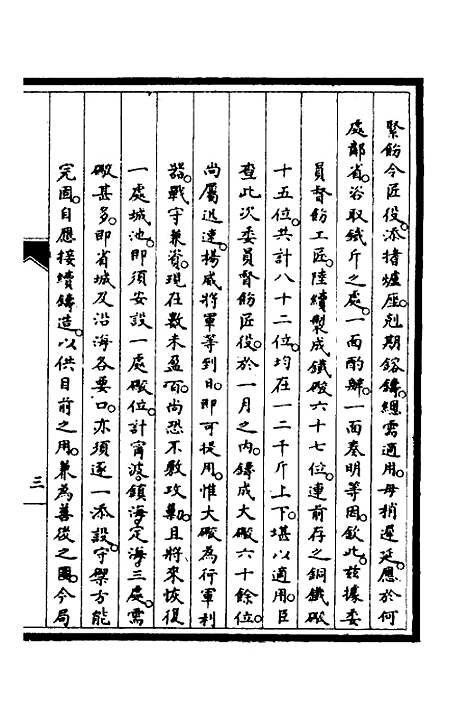 緊飭令匠役。添搭爐座。剋期鎔鑄。總需適用。毋稍遲延。應於何
處部省。咨取鐵斤之處。一面酌辦。一面奏明等因。欽此。茲據委
員督飭工匠。陸續製成鐵礮六十七位。連前存之銅鐵礮
十五位。共計八十二位。均在一二千斤上下。堪以適用。臣
查此次委員督飭匠役。於一月之內。鑄成大礮六十餘位。
尚屬迅速。揚威將軍等到日。即可提用。惟大礮為行軍利
器。戰守兼資。現在數未盈百。尚恐不敷攻勦。且將來恢復
一處城池。即須安設一處礮位。計甯波。鎮海。定海。三處。需
礮甚多。即省城及沿海各要口。亦須逐一添設。守禦方能
完固。自應接續鑄造。以供目前之用。兼為善後之圖。今局
三